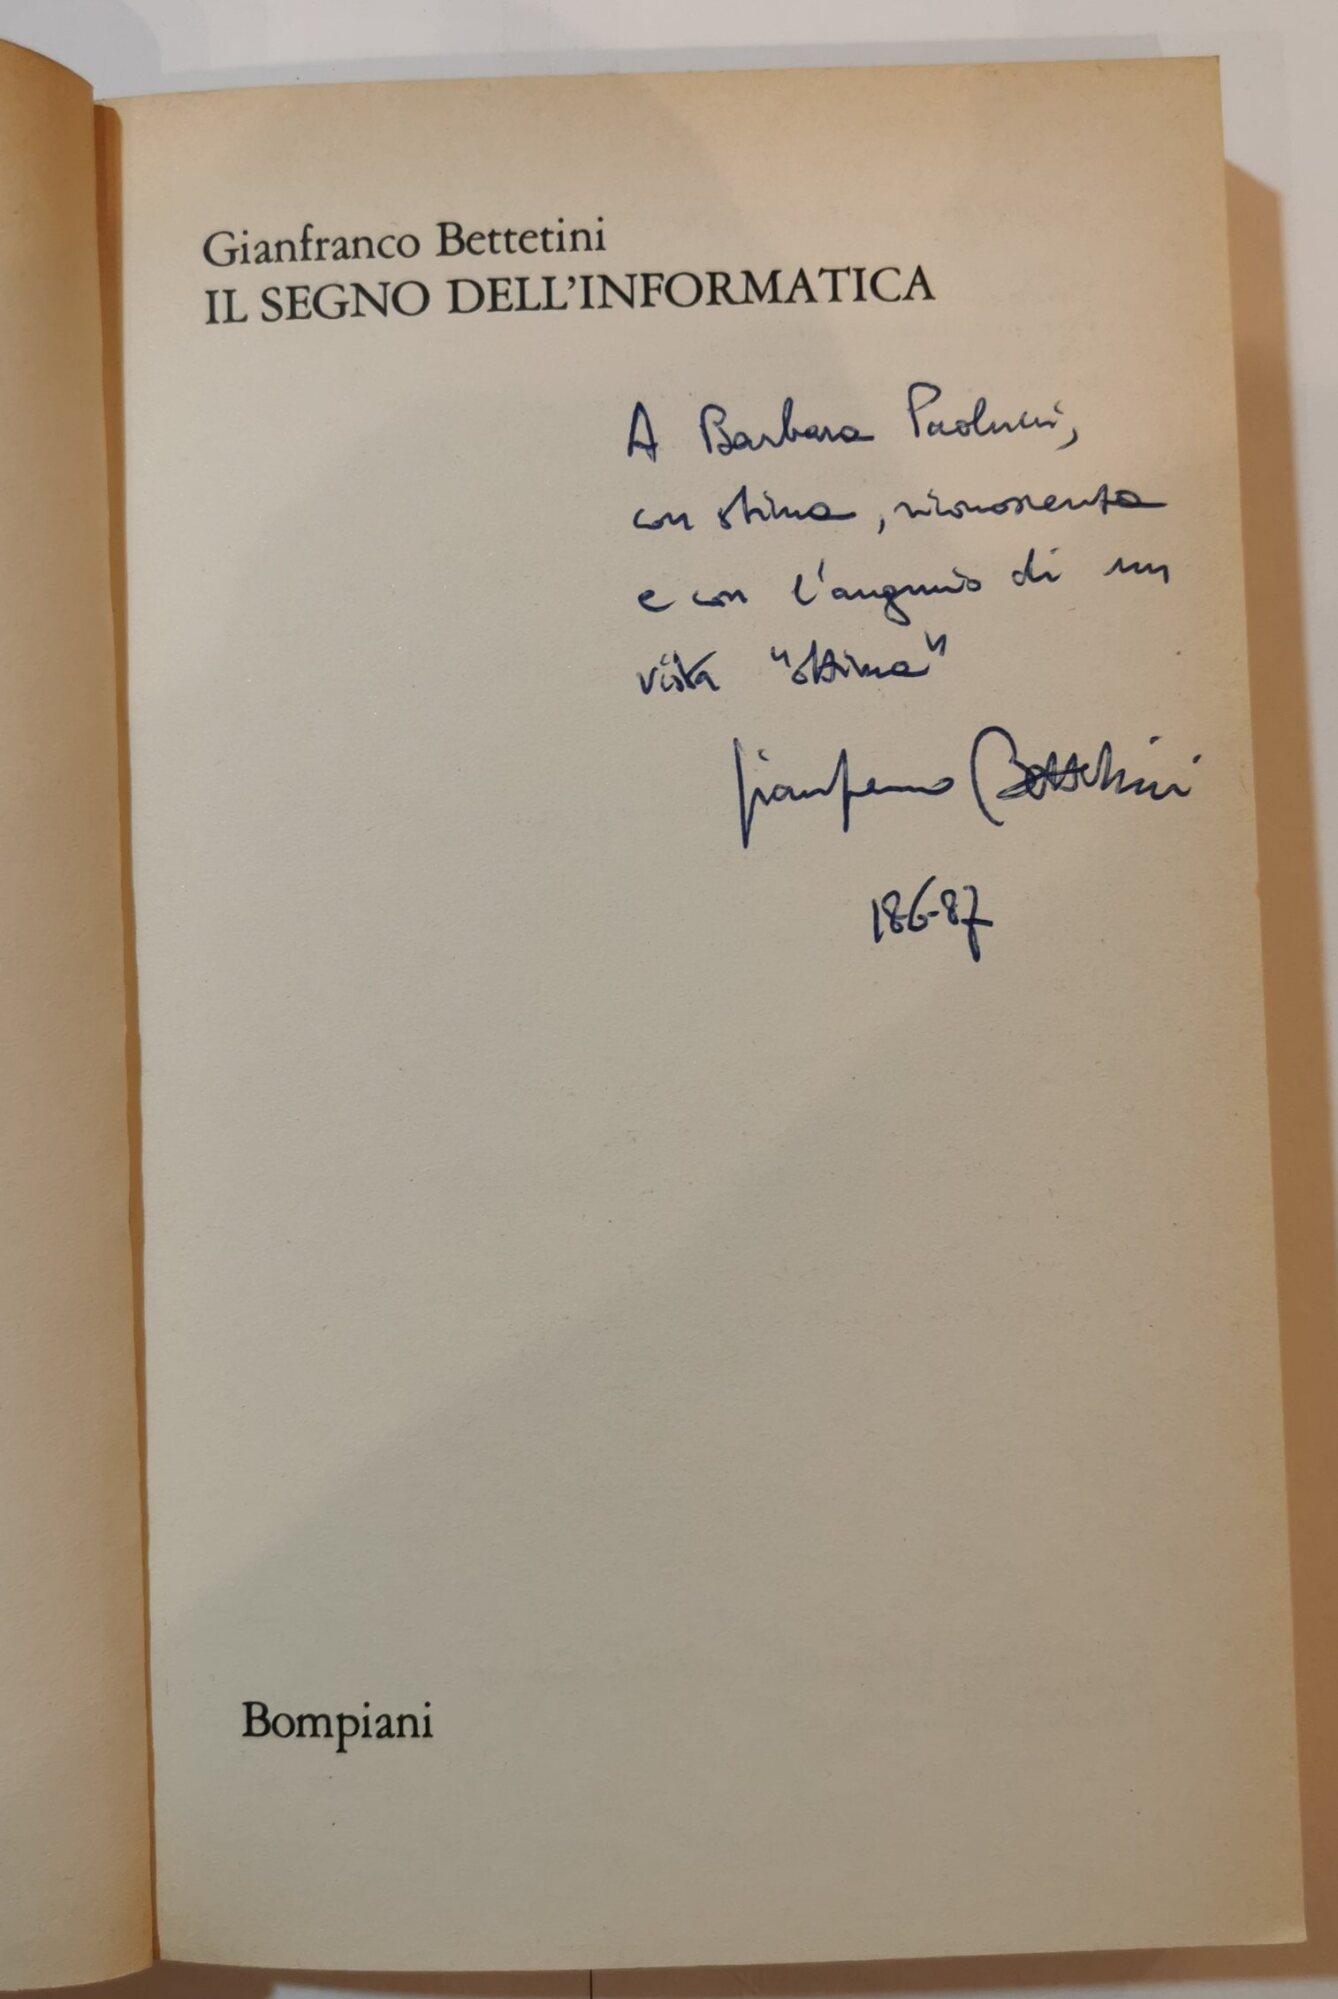 Gianfranco Bettetini
IL SEGNO DELL'INFORMATICA
A Barbara Paolucci,
con stima, riconoscenza
e con l'augurio di un
vista "ottima"
Gianfranco Bettetini
18-6-87
Bompiani